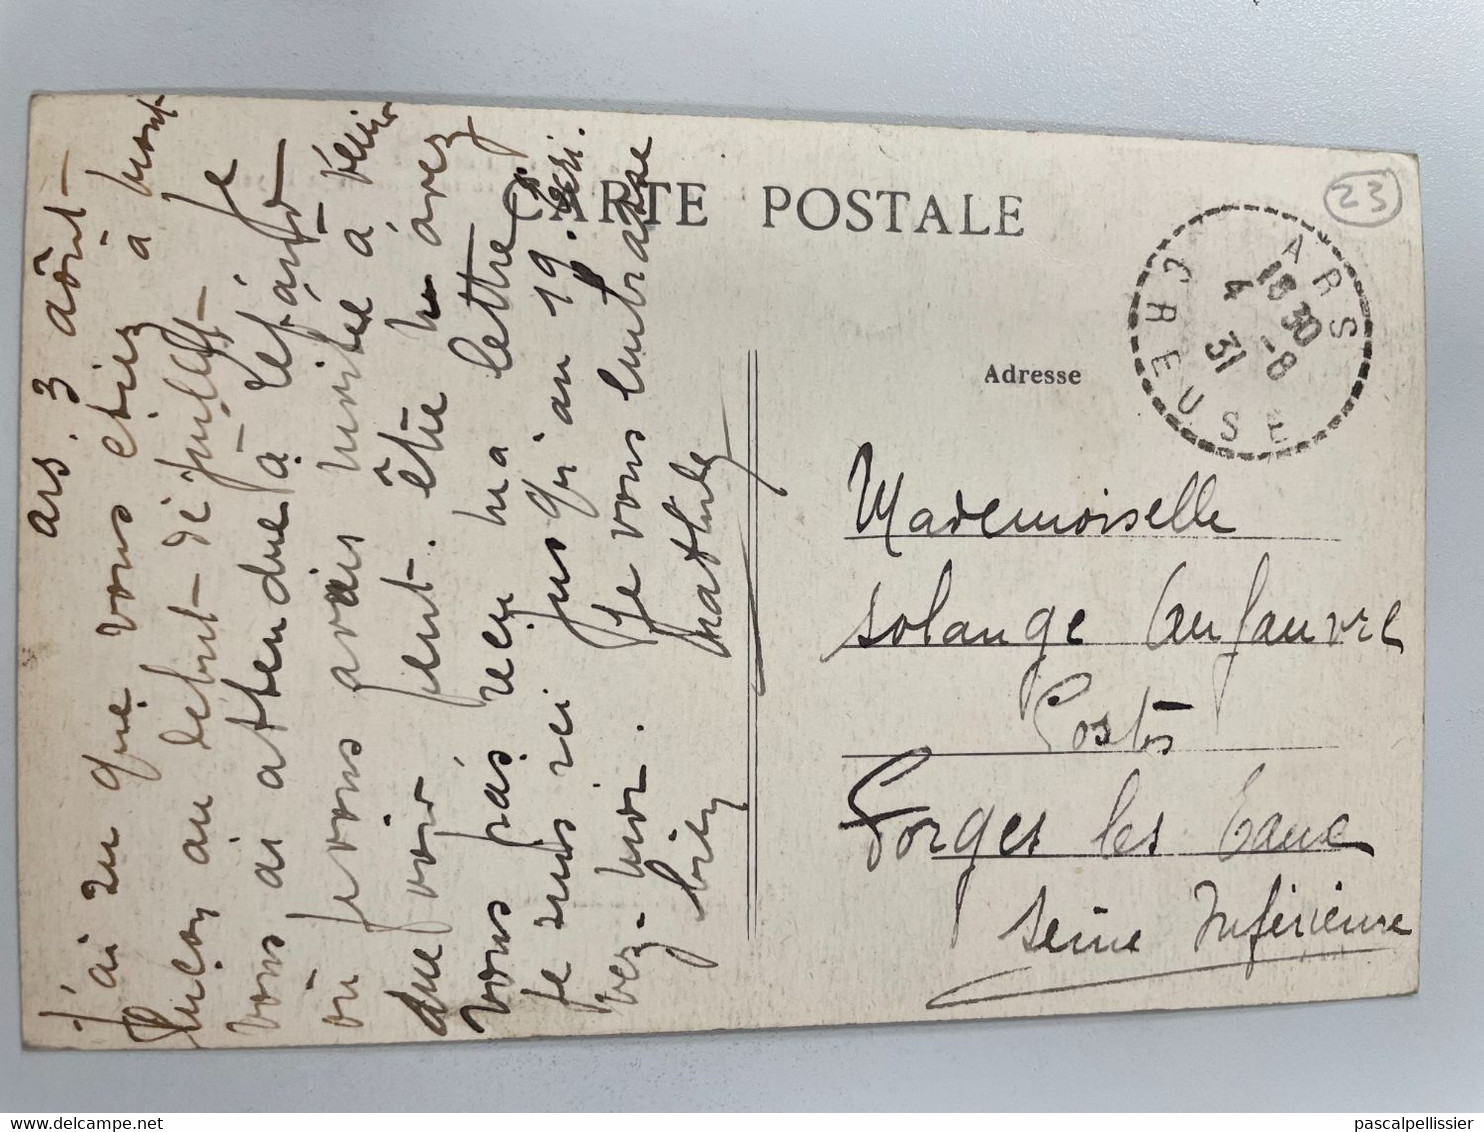 CARTE POSTALE
23
ARS
CREUSE
18 30
4 -8
31
Adresse
Mademoiselle
Solange Aufauvre
Postes
Forges les Eaux
Seine Inférieure
ars. 3 août
j'ai su que vous étiez à mont
luçon au début de juillet. Je
vous ai attendue à
où je vous avais invitée à venir
me voir peut-être n'avez
vous pas reçu ma lettre
Je suis ici jusqu'au 19.
vez-moi. Je vous embrasse
bien Mathilde
delcampe.net
pascalpellissier